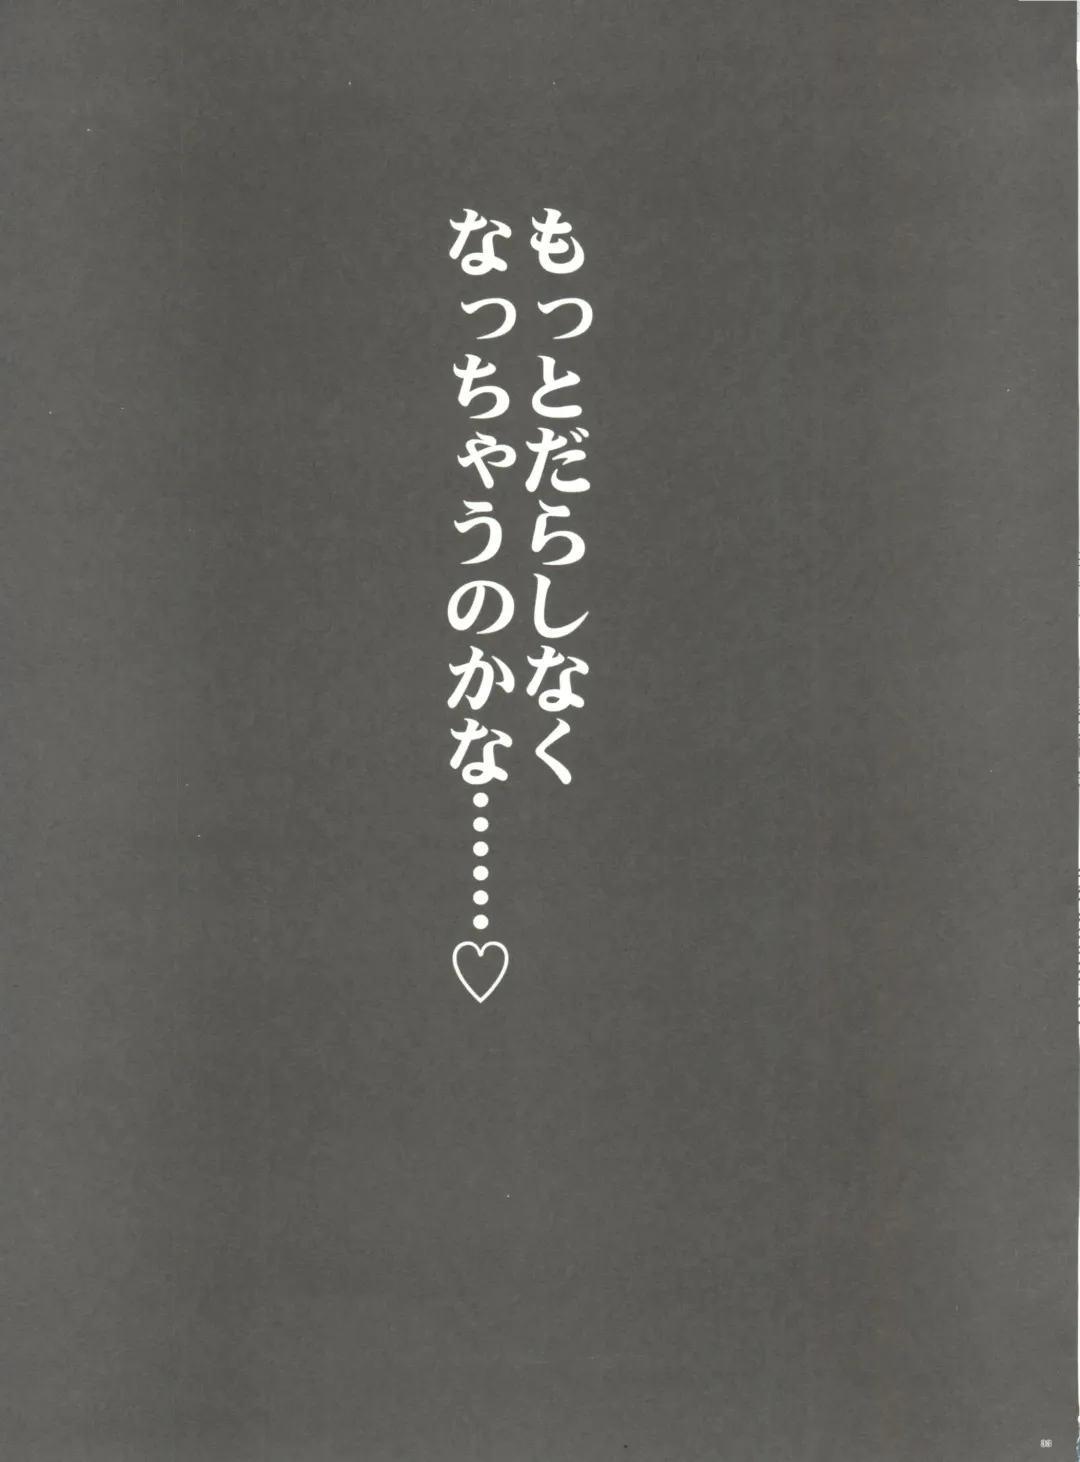 もっとだらしなく
なっちゃうのかな……♡
33